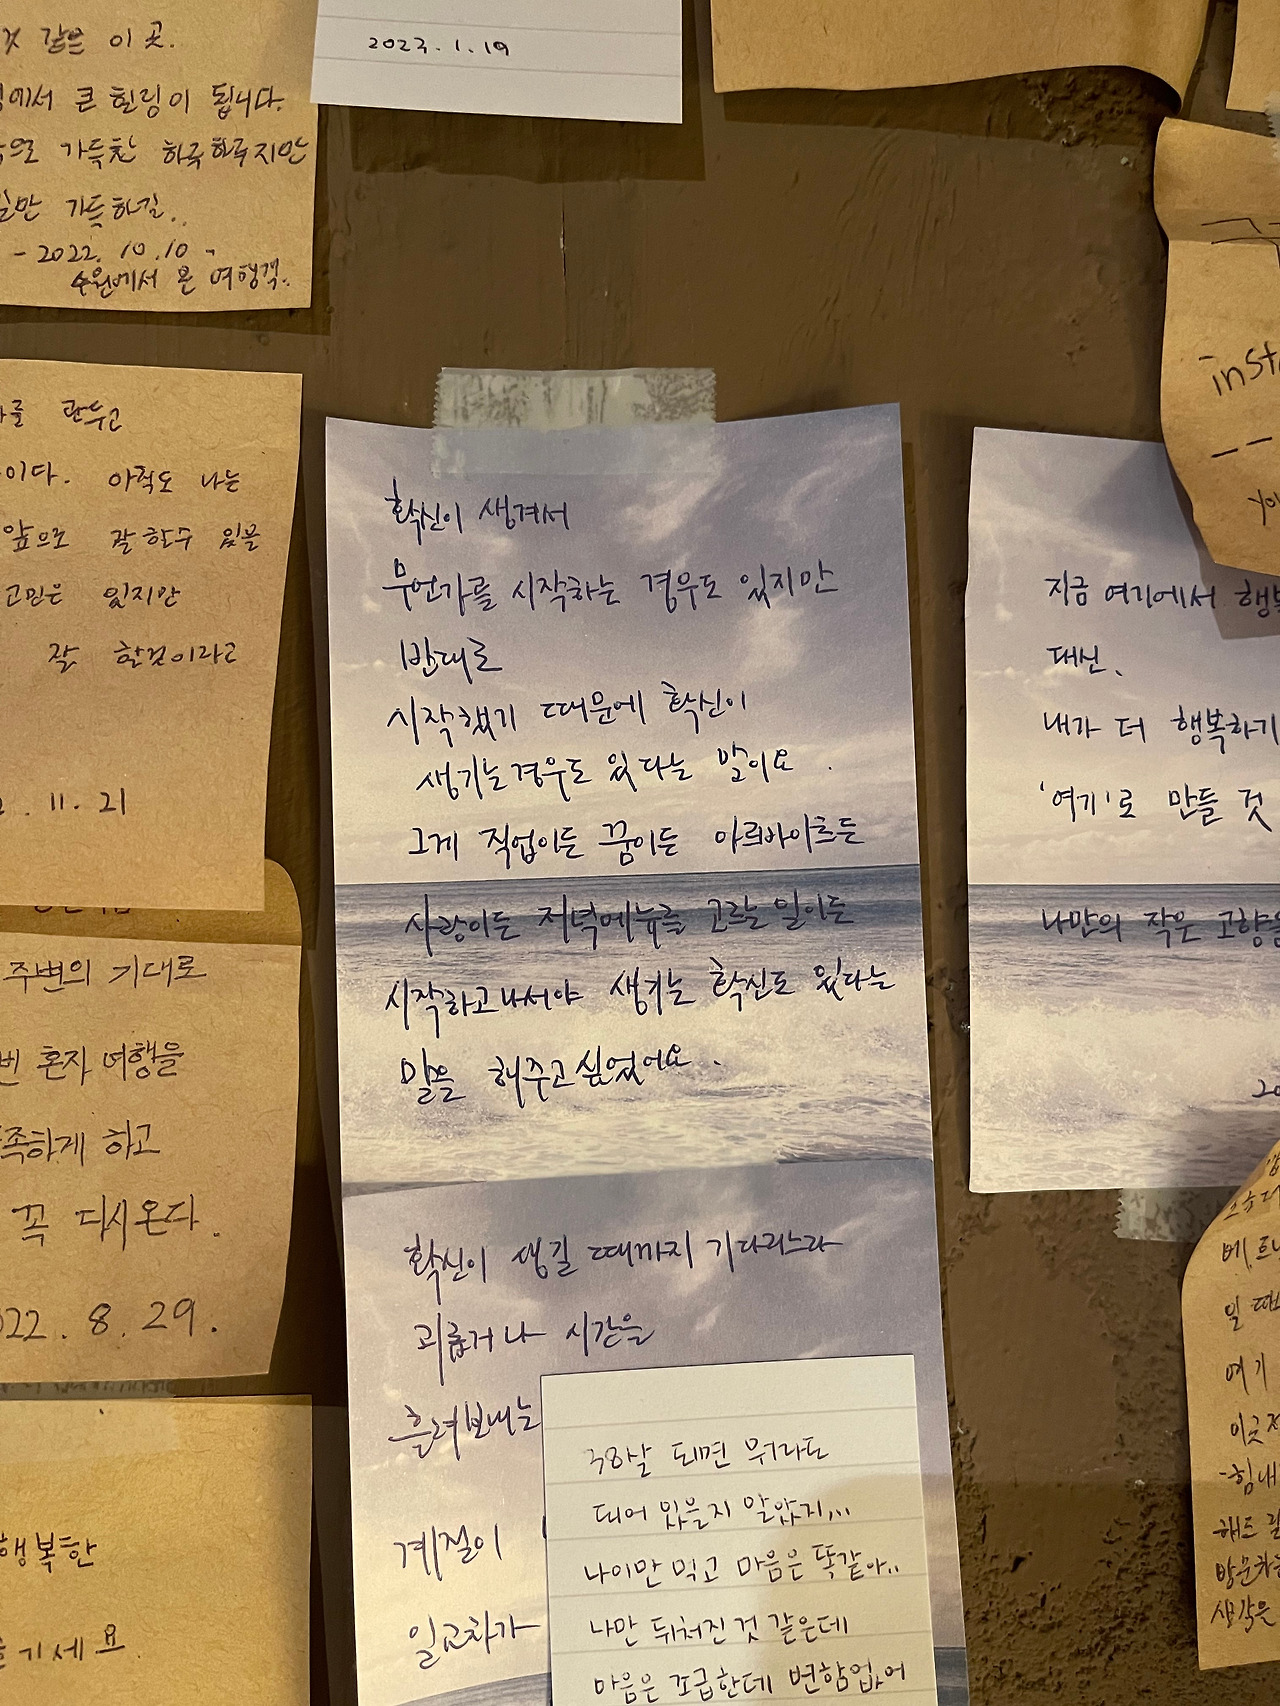 같은 이 곳.
에서 큰 힐링이 됩니다.
으로 가득찬 하루하루지만
일만 가득하길..
- 2022. 10. 10 -
수원에서 온 여행객.
2023. 1. 19
를 관두고
이다. 아직도 나는
앞으로 잘 할 수 있을
고민은 있지만
잘 할것이라고
11. 21
주변의 기대로
혼자 여행을
족하게 하고
꼭 다시온다.
022. 8. 29.
행복한
기세요
확신이 생겨서
무언가를 시작하는 경우도 있지만
반대로
시작했기 때문에 확신이
생기는 경우도 있다는 말이요.
그게 직업이든 꿈이든 아르바이트든
사랑이든 저녁메뉴를 고르는 일이든
시작하고 나서야 생기는 확신도 있다는
말을 해주고 싶었어요.
확신이 생길 때까지 기다리느라
괴롭거나 시간을
흘려보내는
계절이
일교차가
38살 되면 뭐라도
되어 있을지 알았지...
나이만 먹고 마음은 똑같아..
나만 뒤쳐진 것 같은데
마음은 조급한데 변함없어
지금 여기에서 행복
대신,
내가 더 행복하기
'여기'로 만들 것
나만의 작은 고향을
20
inst
yo
베트
일 때
여기
이곳
힘내
해도
방문
생각은